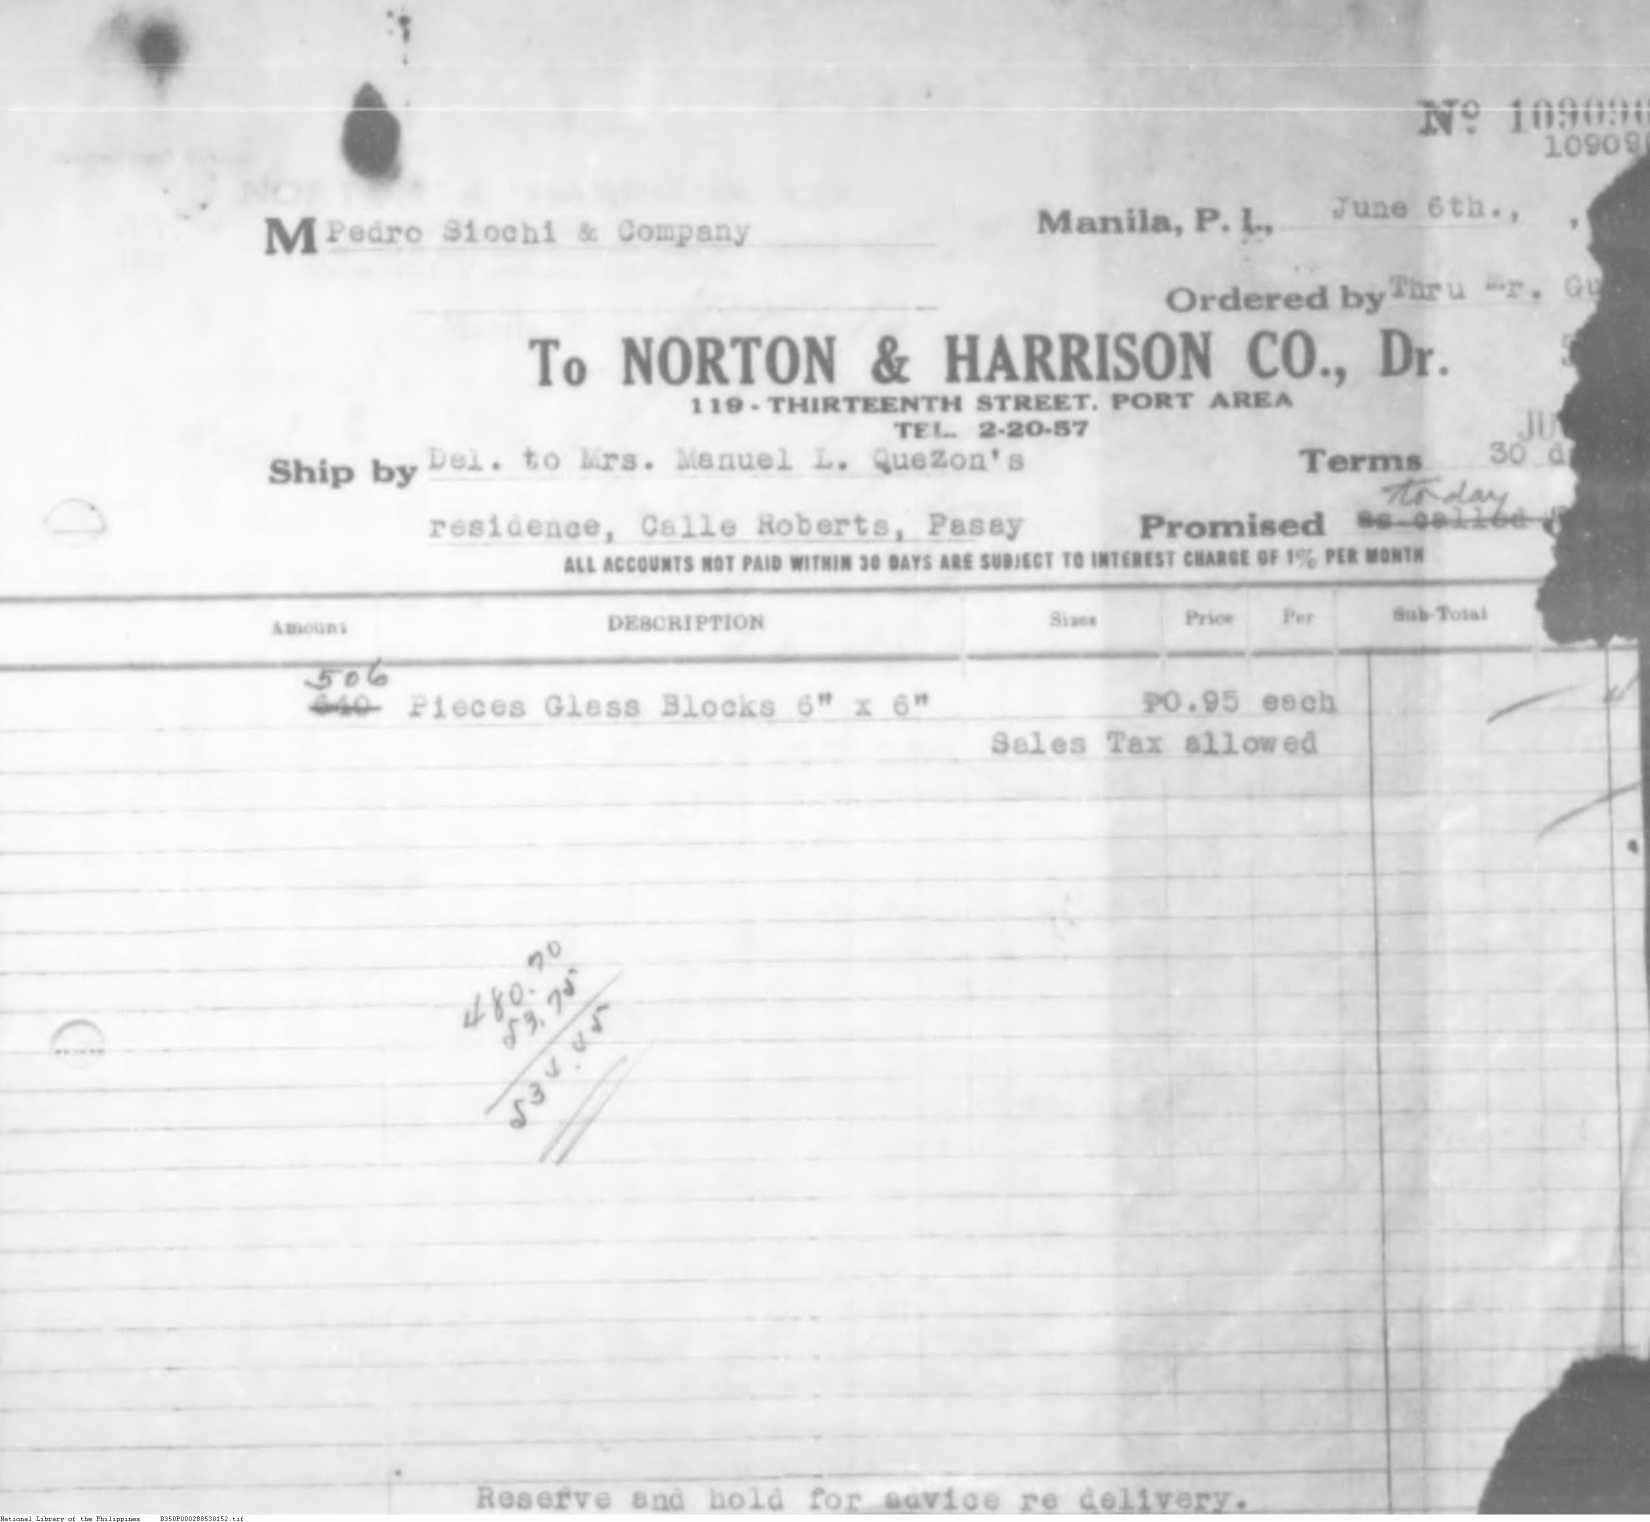 No 109090
10909
M Pedro Siochi & Company
Manila, P. I., June 6th., ,
Ordered by Thru Mr. Gu
To NORTON & HARRISON CO., Dr.
119 - THIRTEENTH STREET. PORT AREA
TEL. 2-20-57
Ship by Del. to Mrs. Manuel L. Quezon's
Terms 30 d
residence, Calle Roberts, Pasay
today
Promised as called
ALL ACCOUNTS NOT PAID WITHIN 30 DAYS ARE SUBJECT TO INTEREST CHARGE OF 1% PER MONTH
Amount DESCRIPTION Sizes Price Per Sub-Total
506
640 Pieces Glass Blocks 6" x 6" ₱0.95 each
Sales Tax allowed
480.70
53.75
534.45
Reserve and hold for advice re delivery.
National Library of the Philippines B350P000288530152.tif